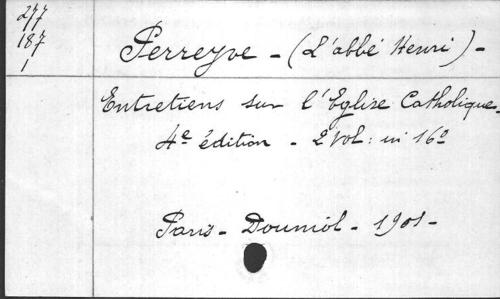 277
187
1
Perreyve - (L'abbé Henri) -
Entretiens sur l'Eglise Catholique -
4e édition - 2 Vol : in 16o
Paris - Douniol - 1901 -